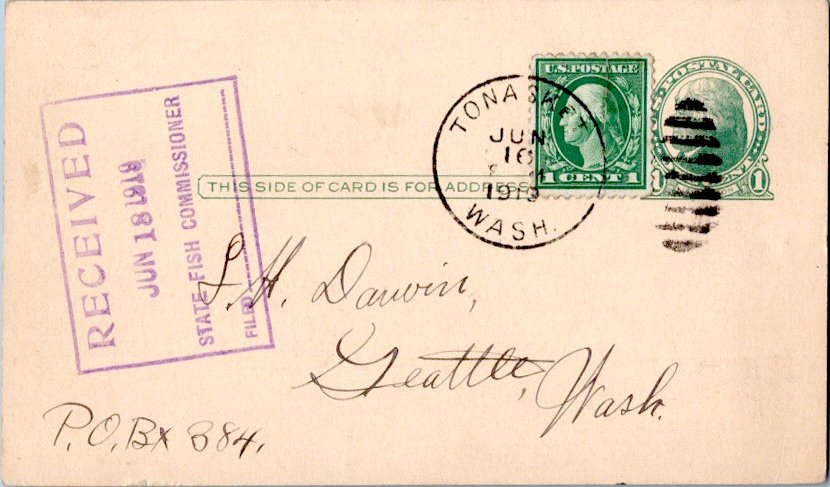 RECEIVED
JUN 18 1919
STATE FISH COMMISSIONER
FILED
TONASKET
JUN
16
1919
WASH.
U.S. POSTAGE
1 CENT 1
U.S. POSTAL CARD
1 1
THIS SIDE OF CARD IS FOR ADDRESS
L. H. Darwin,
Seattle, Wash.
P.O. Bx 384.